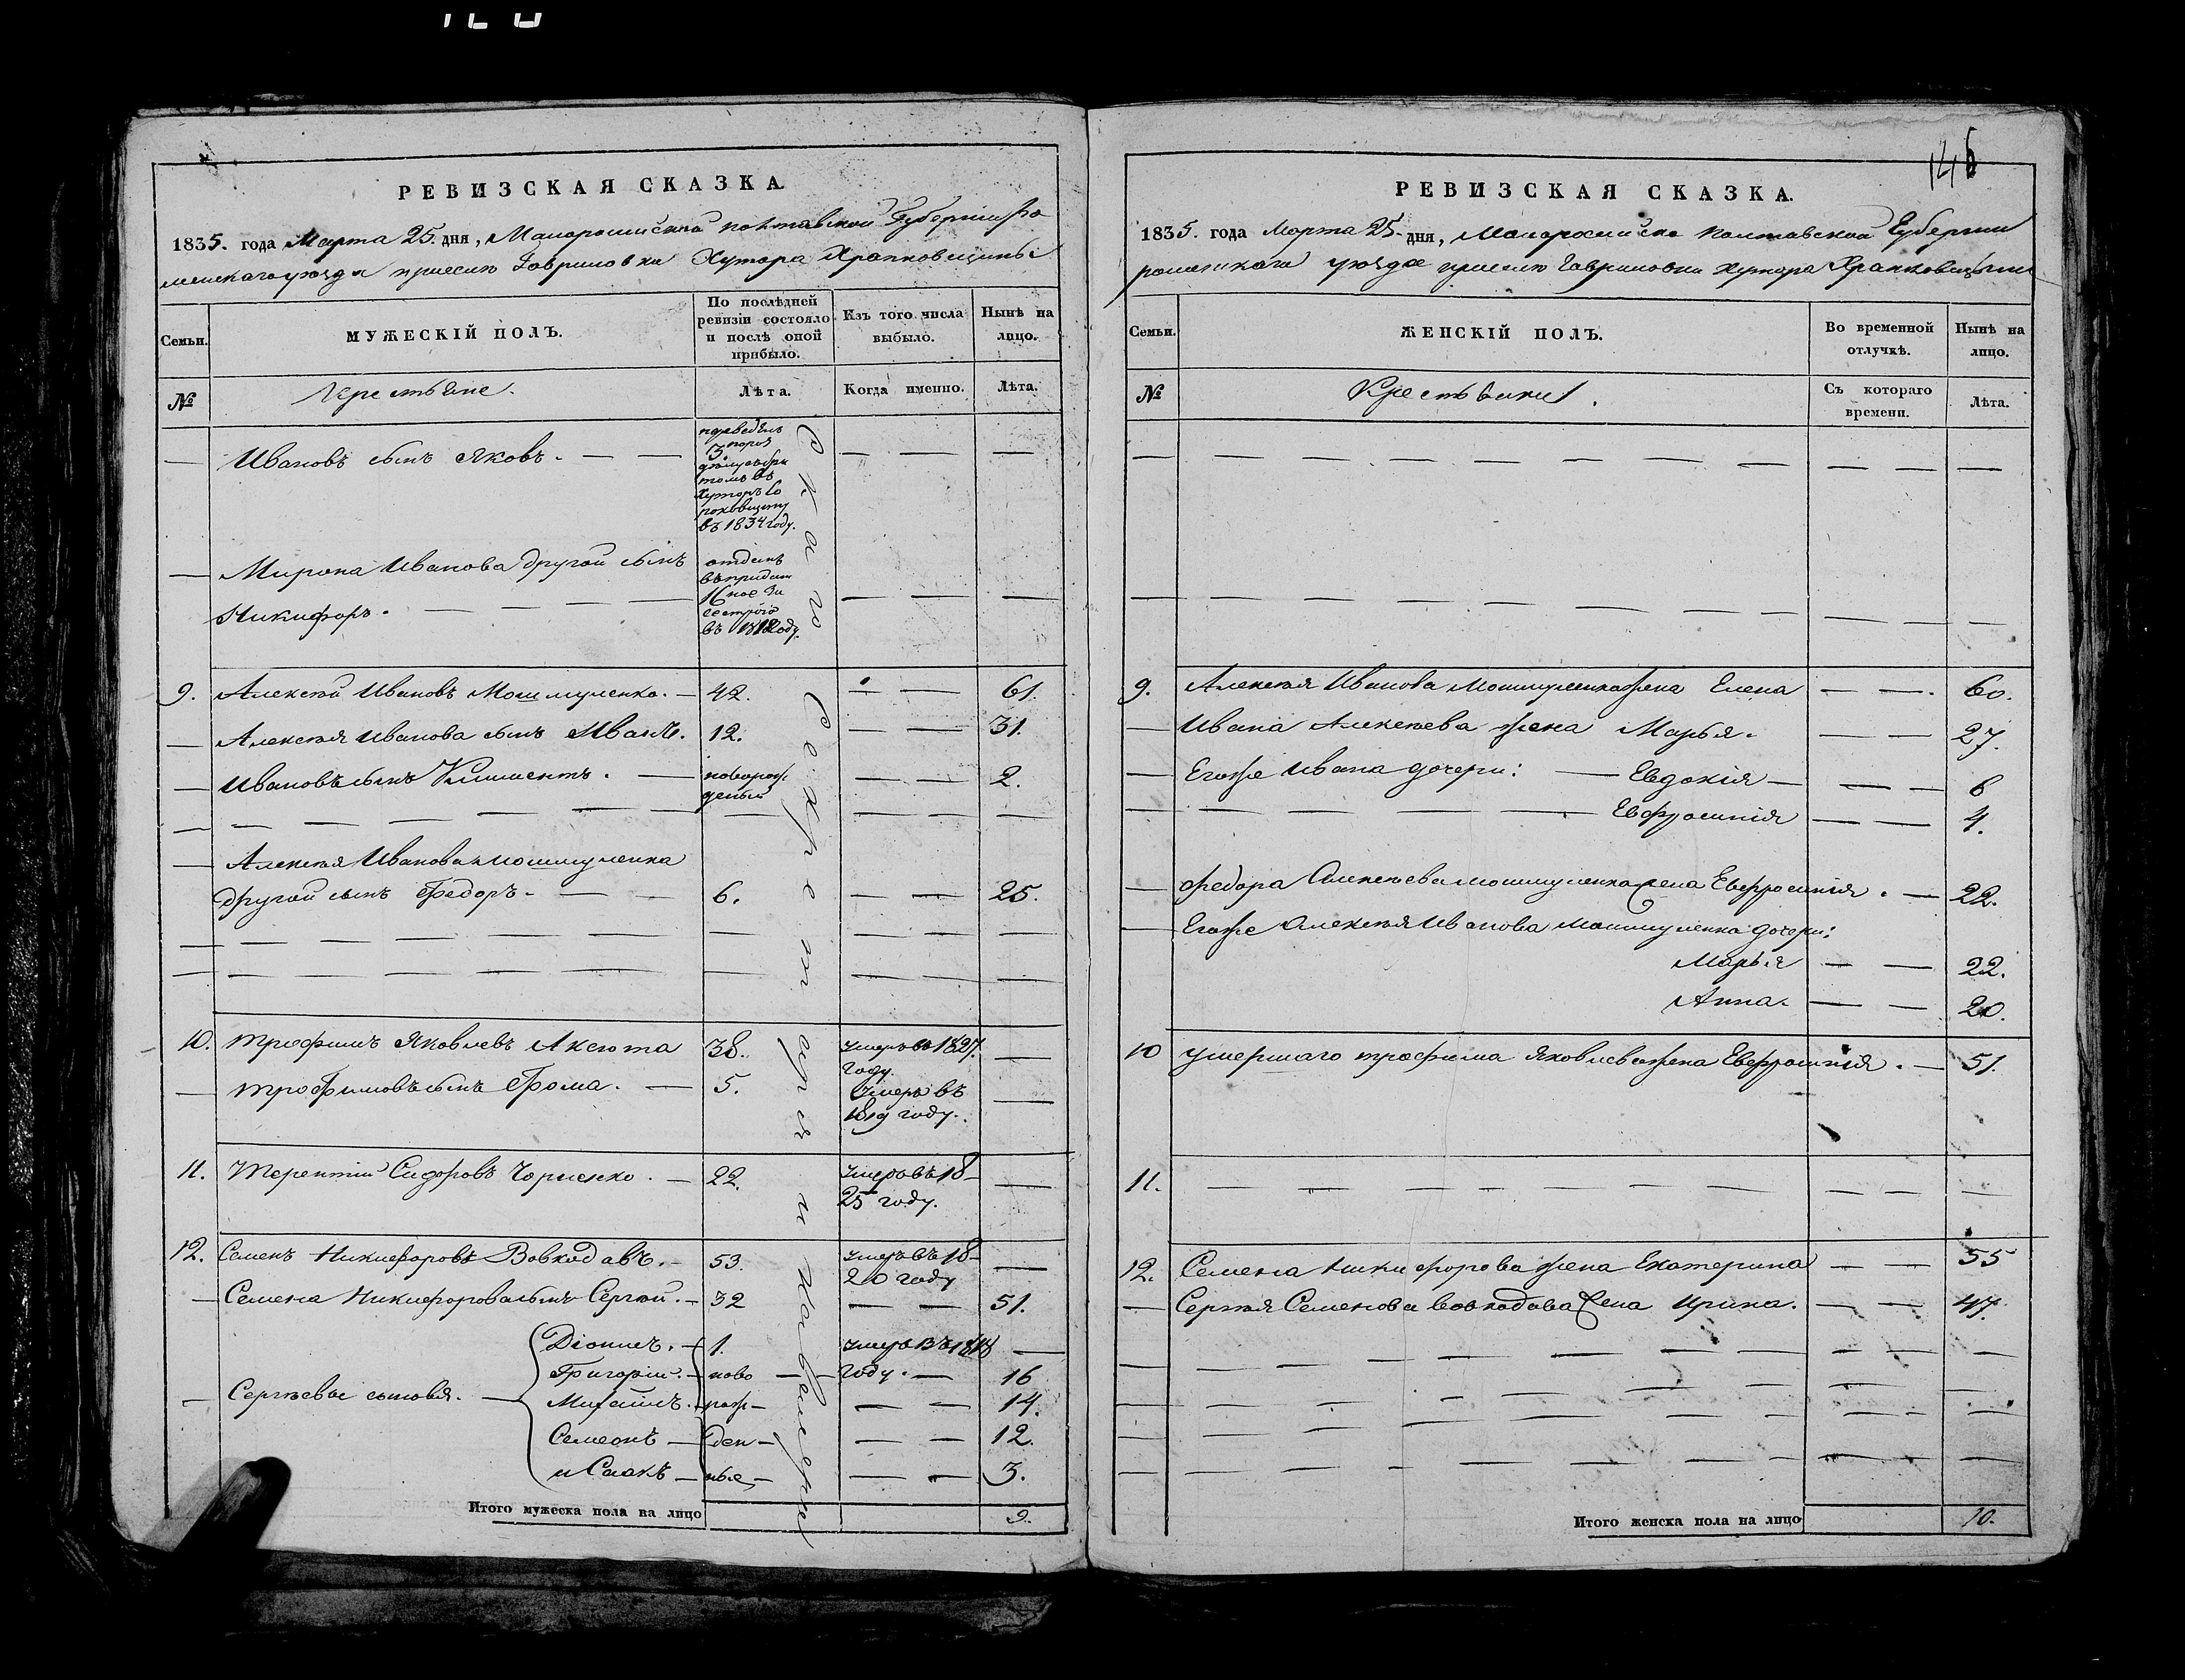 146
РЕВИЗСКАЯ СКАЗКА.
1835. года Марта 25. дня, Малоросійской полтавской Губерніи Ро
менскаго уезда Гавриловки Хутора Храпковщины
Семьи.
МУЖЕСКІЙ ПОЛЪ.
По послѣдней ревизіи состояло и послѣ оной прибыло.
Изъ того числа выбыло.
Нынѣ на лицо.
№
Крестьяне.
Лѣта.
Когда именно.
Лѣта.
— Ивановъ сынъ Яковъ. — —
3.
въ 1834 году.
— Мирона Иванова другой сынъ
Никифоръ. — — — —
отданъ
16
въ 1818 году.
9. Алексѣй Ивановъ Мошмуленко. — 42. — — 61.
— Алексѣя Иванова сынъ Иванъ. 12. — — 31.
— Ивановъ сынъ Климентъ. — новорож
деный — — 2.
— Алексѣя Иванова Мошмуленка
другой сынъ Федоръ. — — 6. — — 25.
10. Трофимъ Яковлевъ Аксюта 38. умеръ въ 1827.
году. —
— Трофимовъ сынъ Фома. — 5. Умеръ въ
1819 году. —
11. Терентій Сидоровъ Чорненко. — 22. умеръ въ 18-
25 году. —
12. Семенъ Никифоровъ Вовкодавъ. — 53. умеръ въ 18-
20 году —
— Семена Никифорова сынъ Сергѣй. — 32 — — 51.
— Сергѣевы сыновья. —
Діонисъ. — 1. умеръ въ 1818 —
Григорій. — ново — году. — 16
Михаилъ. — рож — — — 14.
Семеонъ — ден — — — 12.
и Исакъ — ные — — — 3.
Итого мужеска пола на лицо 9.
Секретаря и кавалера
РЕВИЗСКАЯ СКАЗКА.
1835. года Марта 25. дня, Малоросійско Полтавской Губерніи
роменскаго уезда Гавриловки Хутора Храпковщины
Семьи.
ЖЕНСКІЙ ПОЛЪ.
Во временной отлучкѣ.
Нынѣ на лицо.
№
Крестьянки.
Съ котораго времени.
Лѣта.
9. Алексѣя Иванова Мошмуленка жена Елена — —. 60.
— Ивана Алексѣева жена Марья. — — 27.
— Егоже Ивана дочери: — Евдокія — — — 6
— — — — Евфросинія — — 4.
— Федора Алексѣева Мошмуленка жена Евфросинія. — 22.
— Егоже Алексѣя Иванова Мошмуленка дочери:
Марья — — 22.
Анна. — — 20.
10 умершаго Трофима Яковлева жена Евфросинія. — 51.
11. — — — — — — — — —
12. Семена Никифорова жена Екатерина — — 55
— Сергѣя Семенова Вовкодава жена Ирина. — — 47.
Итого женска пола на лицо 10.